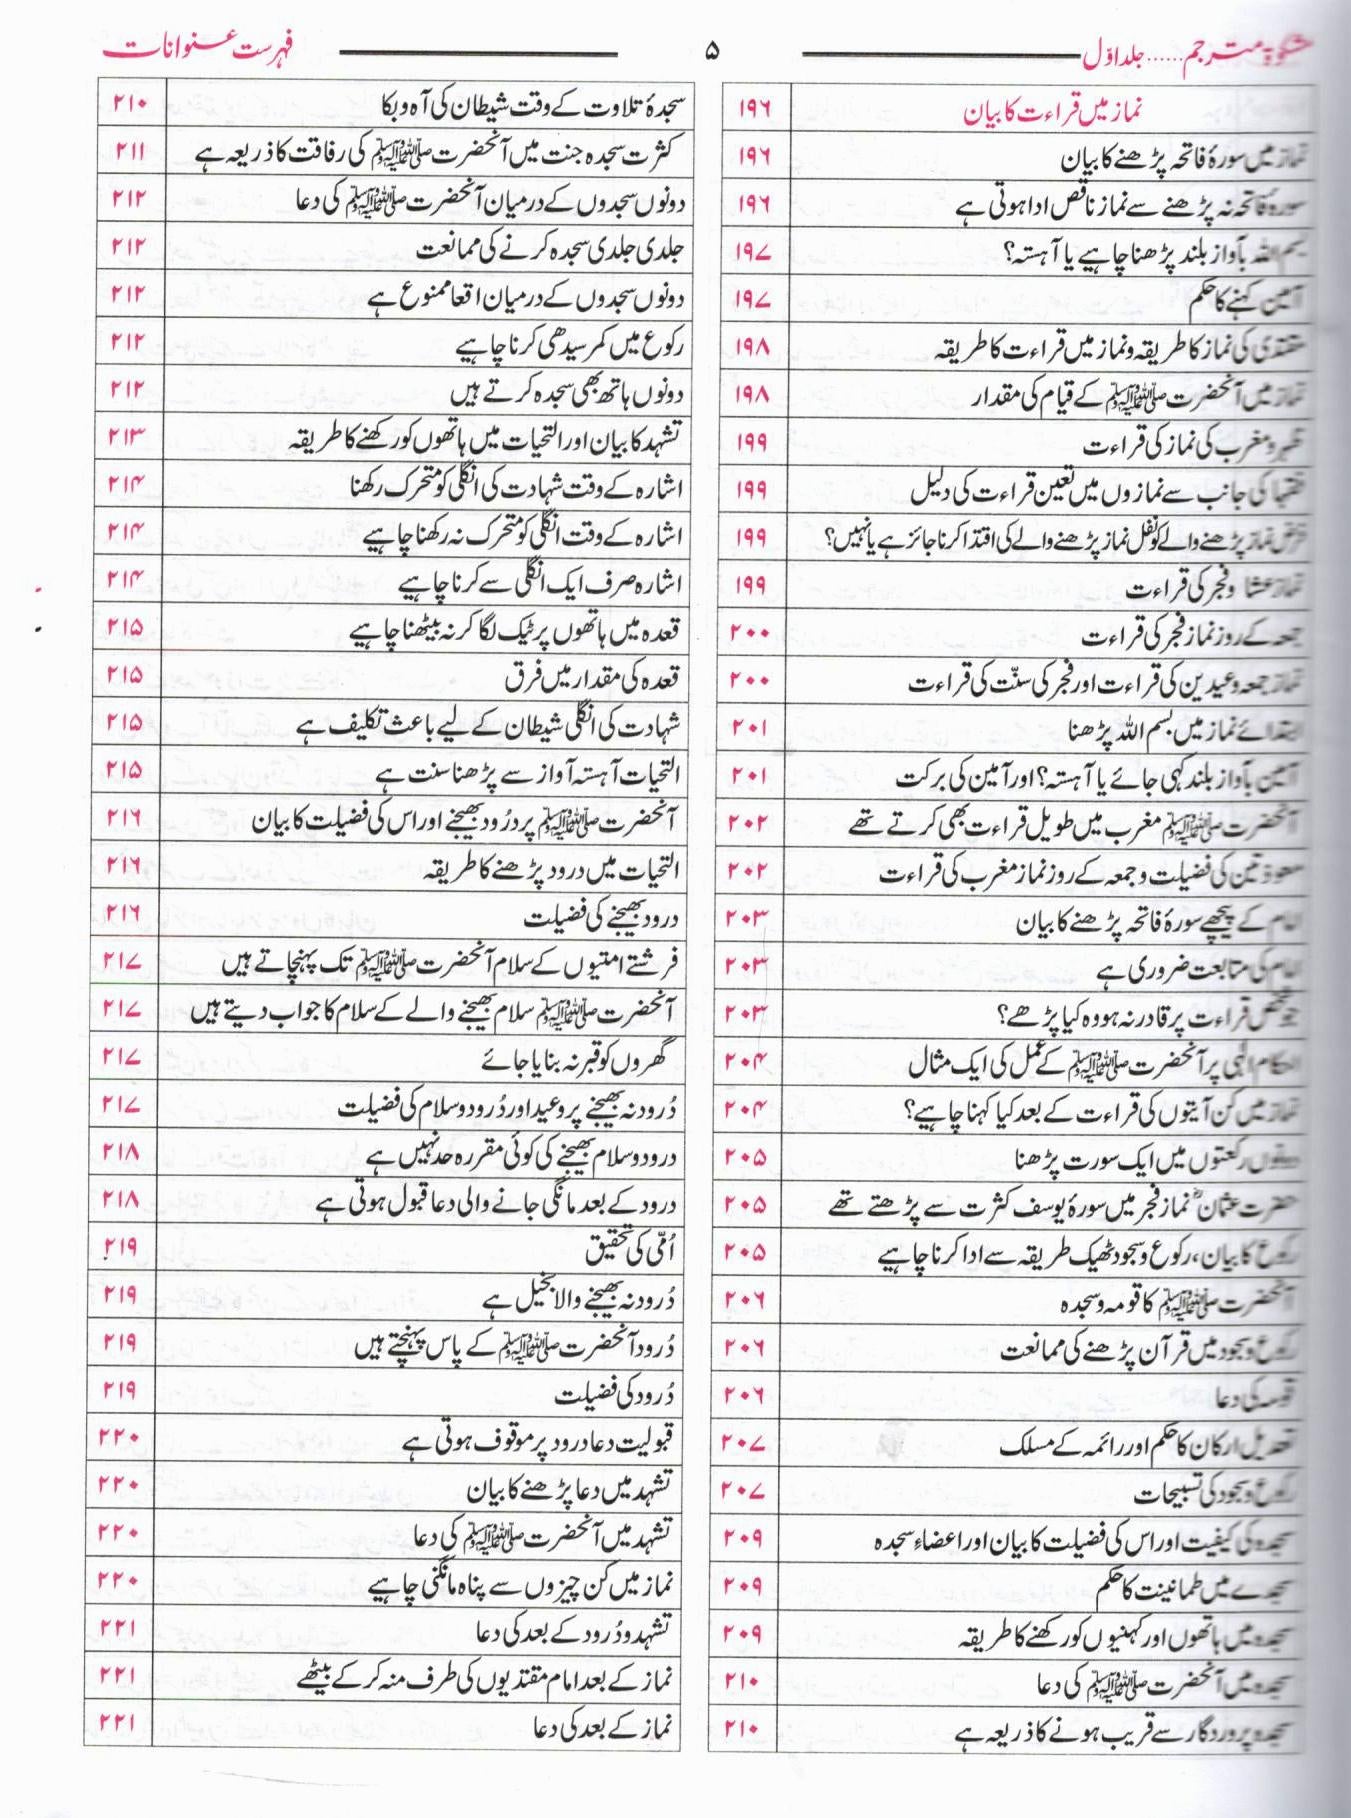 مشکوٰۃ مترجم......جلد اوّل ۵ فہرست عنوانات
نماز میں قراءت کا بیان ۱۹۶
نماز میں سورۂ فاتحہ پڑھنے کا بیان ۱۹۶
سورۂ فاتحہ نہ پڑھنے سے نماز ناقص ادا ہوتی ہے ۱۹۶
بسم اللہ بآواز بلند پڑھنا چاہیے یا آہستہ؟ ۱۹۷
آمین کہنے کا حکم ۱۹۷
مقتدی کی نماز کا طریقہ و نماز میں قراءت کا طریقہ ۱۹۸
نماز میں آنحضرت ﷺ کے قیام کی مقدار ۱۹۸
ظہر و مغرب کی نماز کی قراءت ۱۹۹
فقہا کی جانب سے نمازوں میں تعین قراءت کی دلیل ۱۹۹
فرض نماز پڑھنے والے کو نفل نماز پڑھنے والے کی اقتدا کرنا جائز ہے یا نہیں؟ ۱۹۹
نماز عشا و فجر کی قراءت ۱۹۹
جمعہ کے روز نماز فجر کی قراءت ۲۰۰
نماز جمعہ و عیدین کی قراءت اور فجر کی سنّت کی قراءت ۲۰۰
ابتدائے نماز میں بسم اللہ پڑھنا ۲۰۱
آمین بآواز بلند کہی جائے یا آہستہ؟ اور آمین کی برکت ۲۰۱
آنحضرت ﷺ مغرب میں طویل قراءت بھی کرتے تھے ۲۰۲
معوذتین کی فضیلت و جمعہ کے روز نماز مغرب کی قراءت ۲۰۲
امام کے پیچھے سورۂ فاتحہ پڑھنے کا بیان ۲۰۳
امام کی متابعت ضروری ہے ۲۰۳
جو شخص قراءت پر قادر نہ ہو وہ کیا پڑھے؟ ۲۰۳
احکام الٰہی پر آنحضرت ﷺ کے عمل کی ایک مثال ۲۰۴
نماز میں کن آیتوں کی قراءت کے بعد کیا کہنا چاہیے؟ ۲۰۴
دونوں رکعتوں میں ایک سورت پڑھنا ۲۰۵
حضرت عثمانؓ نماز فجر میں سورۂ یوسف کثرت سے پڑھتے تھے ۲۰۵
رکوع کا بیان، رکوع و سجود ٹھیک طریقہ سے ادا کرنا چاہیے ۲۰۵
آنحضرت ﷺ کا قومہ و سجدہ ۲۰۶
رکوع و سجود میں قرآن پڑھنے کی ممانعت ۲۰۶
قومہ کی دعا ۲۰۶
تعدیل ارکان کا حکم اور رائمہ کے مسلک ۲۰۷
رکوع و سجود کی تسبیحات ۲۰۷
سجدہ کی کیفیت اور اس کی فضیلت کا بیان اور اعضاءِ سجدہ ۲۰۹
سجدے میں طمانینت کا حکم ۲۰۹
سجدہ میں ہاتھوں اور کہنیوں کو رکھنے کا طریقہ ۲۰۹
سجدہ میں آنحضرت ﷺ کی دعا ۲۱۰
سجدہ پروردگار سے قریب ہونے کا ذریعہ ہے ۲۱۰
سجدۂ تلاوت کے وقت شیطان کی آہ و بکا ۲۱۰
کثرت سجدہ جنت میں آنحضرت ﷺ کی رفاقت کا ذریعہ ہے ۲۱۱
دونوں سجدوں کے درمیان آنحضرت ﷺ کی دعا ۲۱۲
جلدی جلدی سجدہ کرنے کی ممانعت ۲۱۲
دونوں سجدوں کے درمیان اقعا ممنوع ہے ۲۱۲
رکوع میں کمر سیدھی کرنا چاہیے ۲۱۲
دونوں ہاتھ بھی سجدہ کرتے ہیں ۲۱۲
تشہد کا بیان اور التحیات میں ہاتھوں کو رکھنے کا طریقہ ۲۱۳
اشارہ کے وقت شہادت کی انگلی کو متحرک رکھنا ۲۱۴
اشارہ کے وقت انگلی کو متحرک نہ رکھنا چاہیے ۲۱۴
اشارہ صرف ایک انگلی سے کرنا چاہیے ۲۱۴
قعدہ میں ہاتھوں پر ٹیک لگا کر نہ بیٹھنا چاہیے ۲۱۵
قعدہ کی مقدار میں فرق ۲۱۵
شہادت کی انگلی شیطان کے لیے باعث تکلیف ہے ۲۱۵
التحیات آہستہ آواز سے پڑھنا سنت ہے ۲۱۵
آنحضرت ﷺ پر درُود بھیجنے اور اس کی فضیلت کا بیان ۲۱۶
التحیات میں درود پڑھنے کا طریقہ ۲۱۶
درود بھیجنے کی فضیلت ۲۱۶
فرشتے امتیوں کے سلام آنحضرت ﷺ تک پہنچاتے ہیں ۲۱۷
آنحضرت ﷺ سلام بھیجنے والے کے سلام کا جواب دیتے ہیں ۲۱۷
گھروں کو قبر نہ بنایا جائے ۲۱۷
دُرود نہ بھیجنے پر وعید اور دُرود و سلام کی فضیلت ۲۱۷
درود و سلام بھیجنے کی کوئی مقررہ حد نہیں ہے ۲۱۸
درود کے بعد مانگی جانے والی دعا قبول ہوتی ہے ۲۱۸
اُمّی کی تحقیق ۲۱۹
دُرود نہ بھیجنے والا بخیل ہے ۲۱۹
دُرود آنحضرت ﷺ کے پاس پہنچتے ہیں ۲۱۹
دُرود کی فضیلت ۲۱۹
قبولیت دعا درود پر موقوف ہوتی ہے ۲۲۰
تشہد میں دعا پڑھنے کا بیان ۲۲۰
تشہد میں آنحضرت ﷺ کی دعا ۲۲۰
نماز میں کن چیزوں سے پناہ مانگنی چاہیے ۲۲۰
تشہد و دُرود کے بعد کی دعا ۲۲۱
نماز کے بعد امام مقتدیوں کی طرف منہ کر کے بیٹھے ۲۲۱
نماز کے بعد کی دعا ۲۲۱